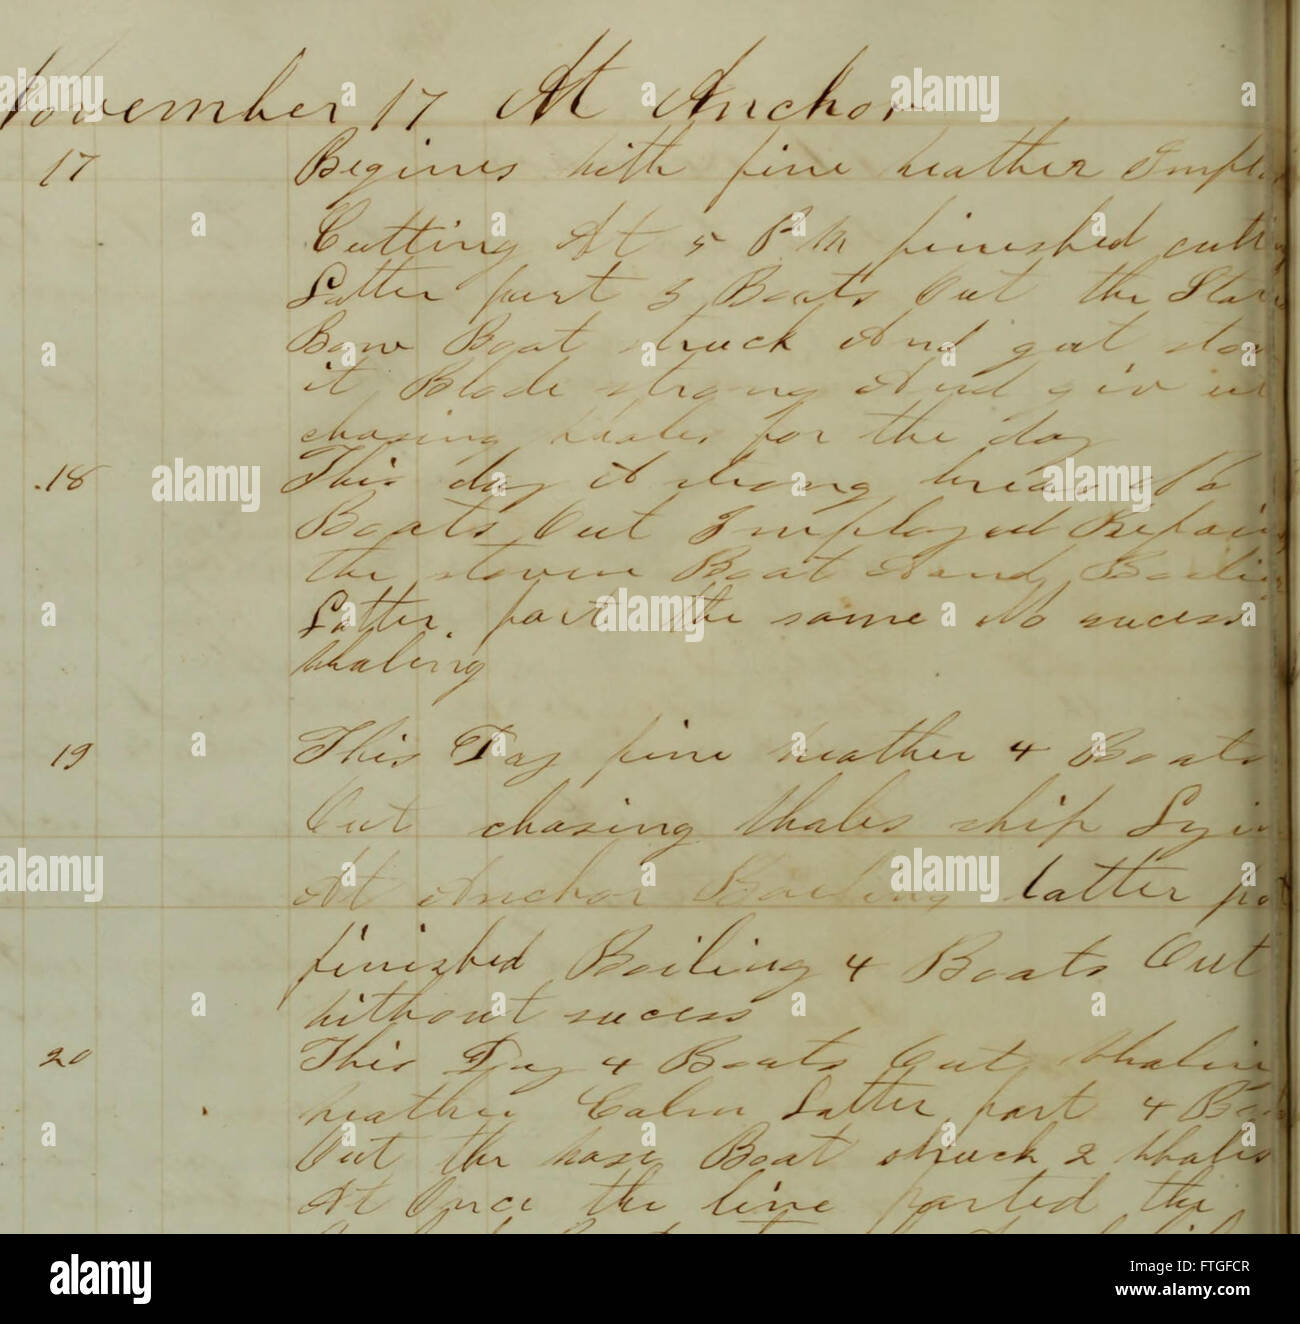 November 17 At Anchor
17 Begines with fine weather Imploy
Cutting At 5 P M finished cutting
Latter part 3 Boats Out the Star
Bow Boat struck And got stove
it Blode strong And giv up
chasing whales for the day
18 This day A strong breas No
Boats Out Imployed Repairing
the stoven Boat And Boiling
Latter part the same No sucess
whaling
19 This Day fine weather 4 Boats
Out chasing whales ship Lying
At Anchor Boiling latter pa
finished Boiling 4 Boats Out
without sucess
20 This Day 4 Boats Out whalin
weather Calm Latter part 4 Boa
Out the Boat struck 2 whales
At Once the line parted the
alamy
a
alamy stock photo
Image ID: FTGFCR
www.alamy.com